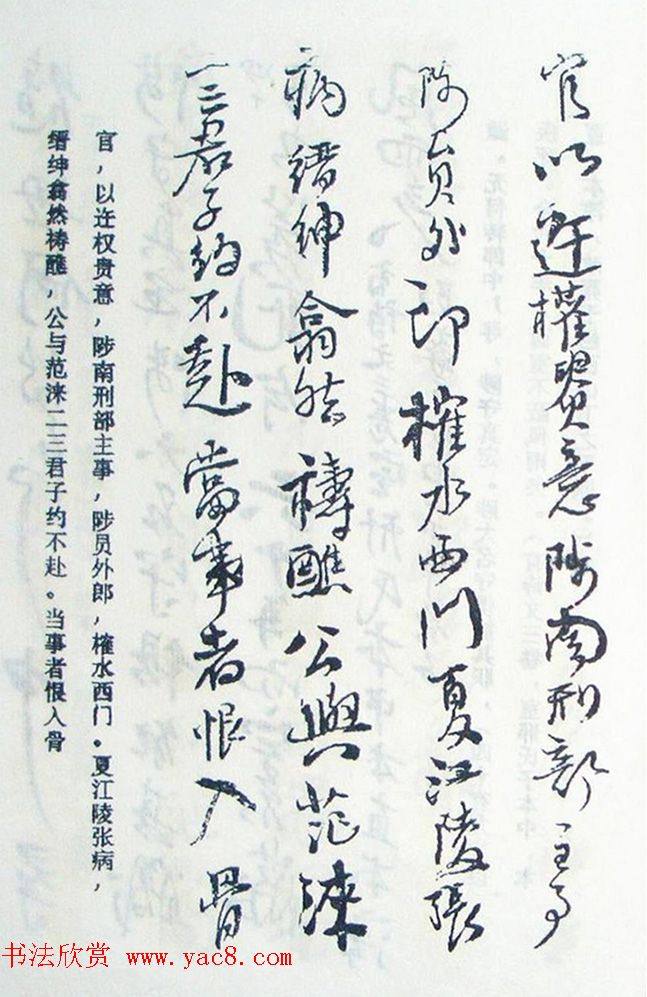 官以迕權貴意陟南刑部主事
陟員外郎榷水西門夏江陵張
病縉紳翕然禱醮公與范淶
二三君子約不赴當事者恨入骨
官，以迕权贵意，陟南刑部主事，陟员外郎，榷水西门。夏江陵张病，
缙绅翕然祷醮，公与范涞二三君子约不赴。当事者恨入骨
书法欣赏 www.yac8.com